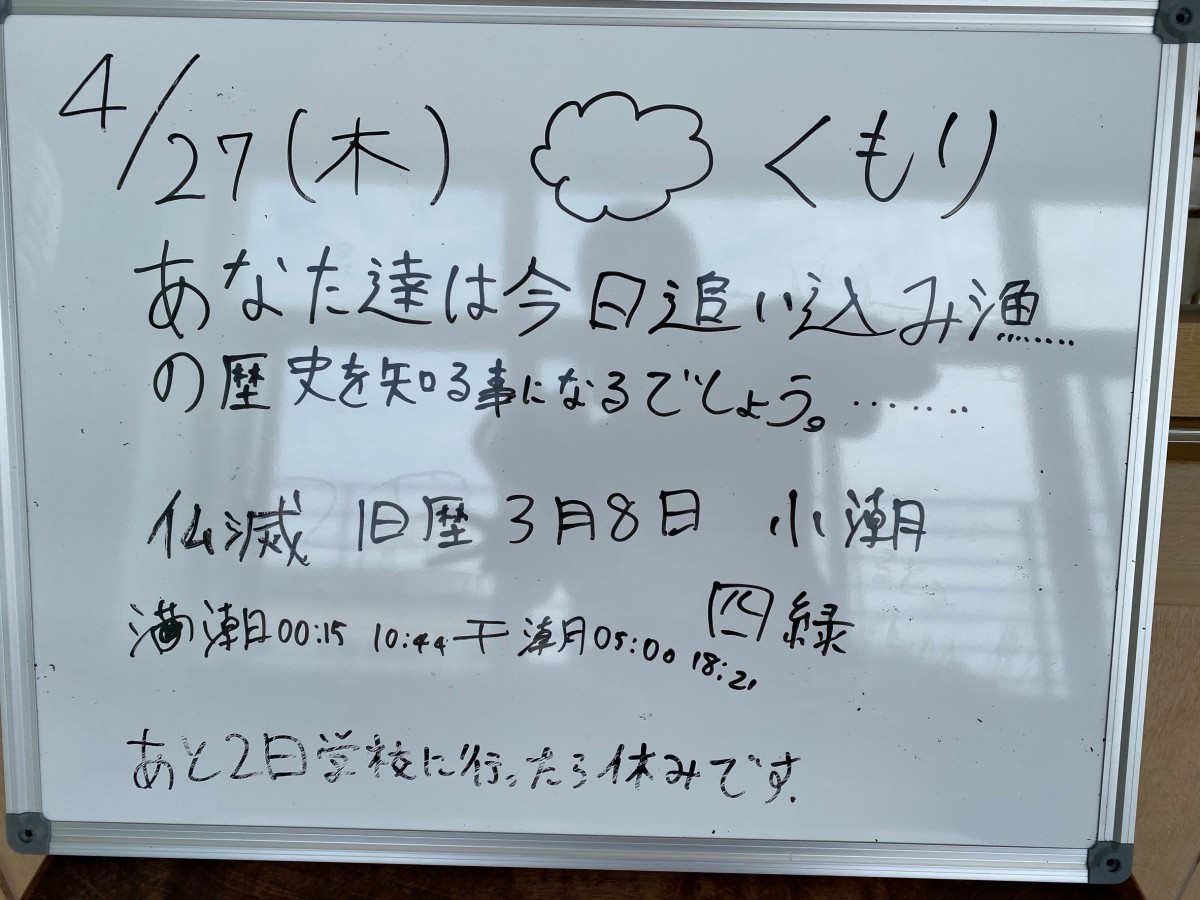 4/27(木) くもり
あなた達は今日追い込み漁……
の歴史を知る事になるでしょう。……
仏滅 旧歴3月8日 小潮
満潮00:15 10:44 干潮05:00 18:21 四緑
あと2日学校に行ったら休みです.